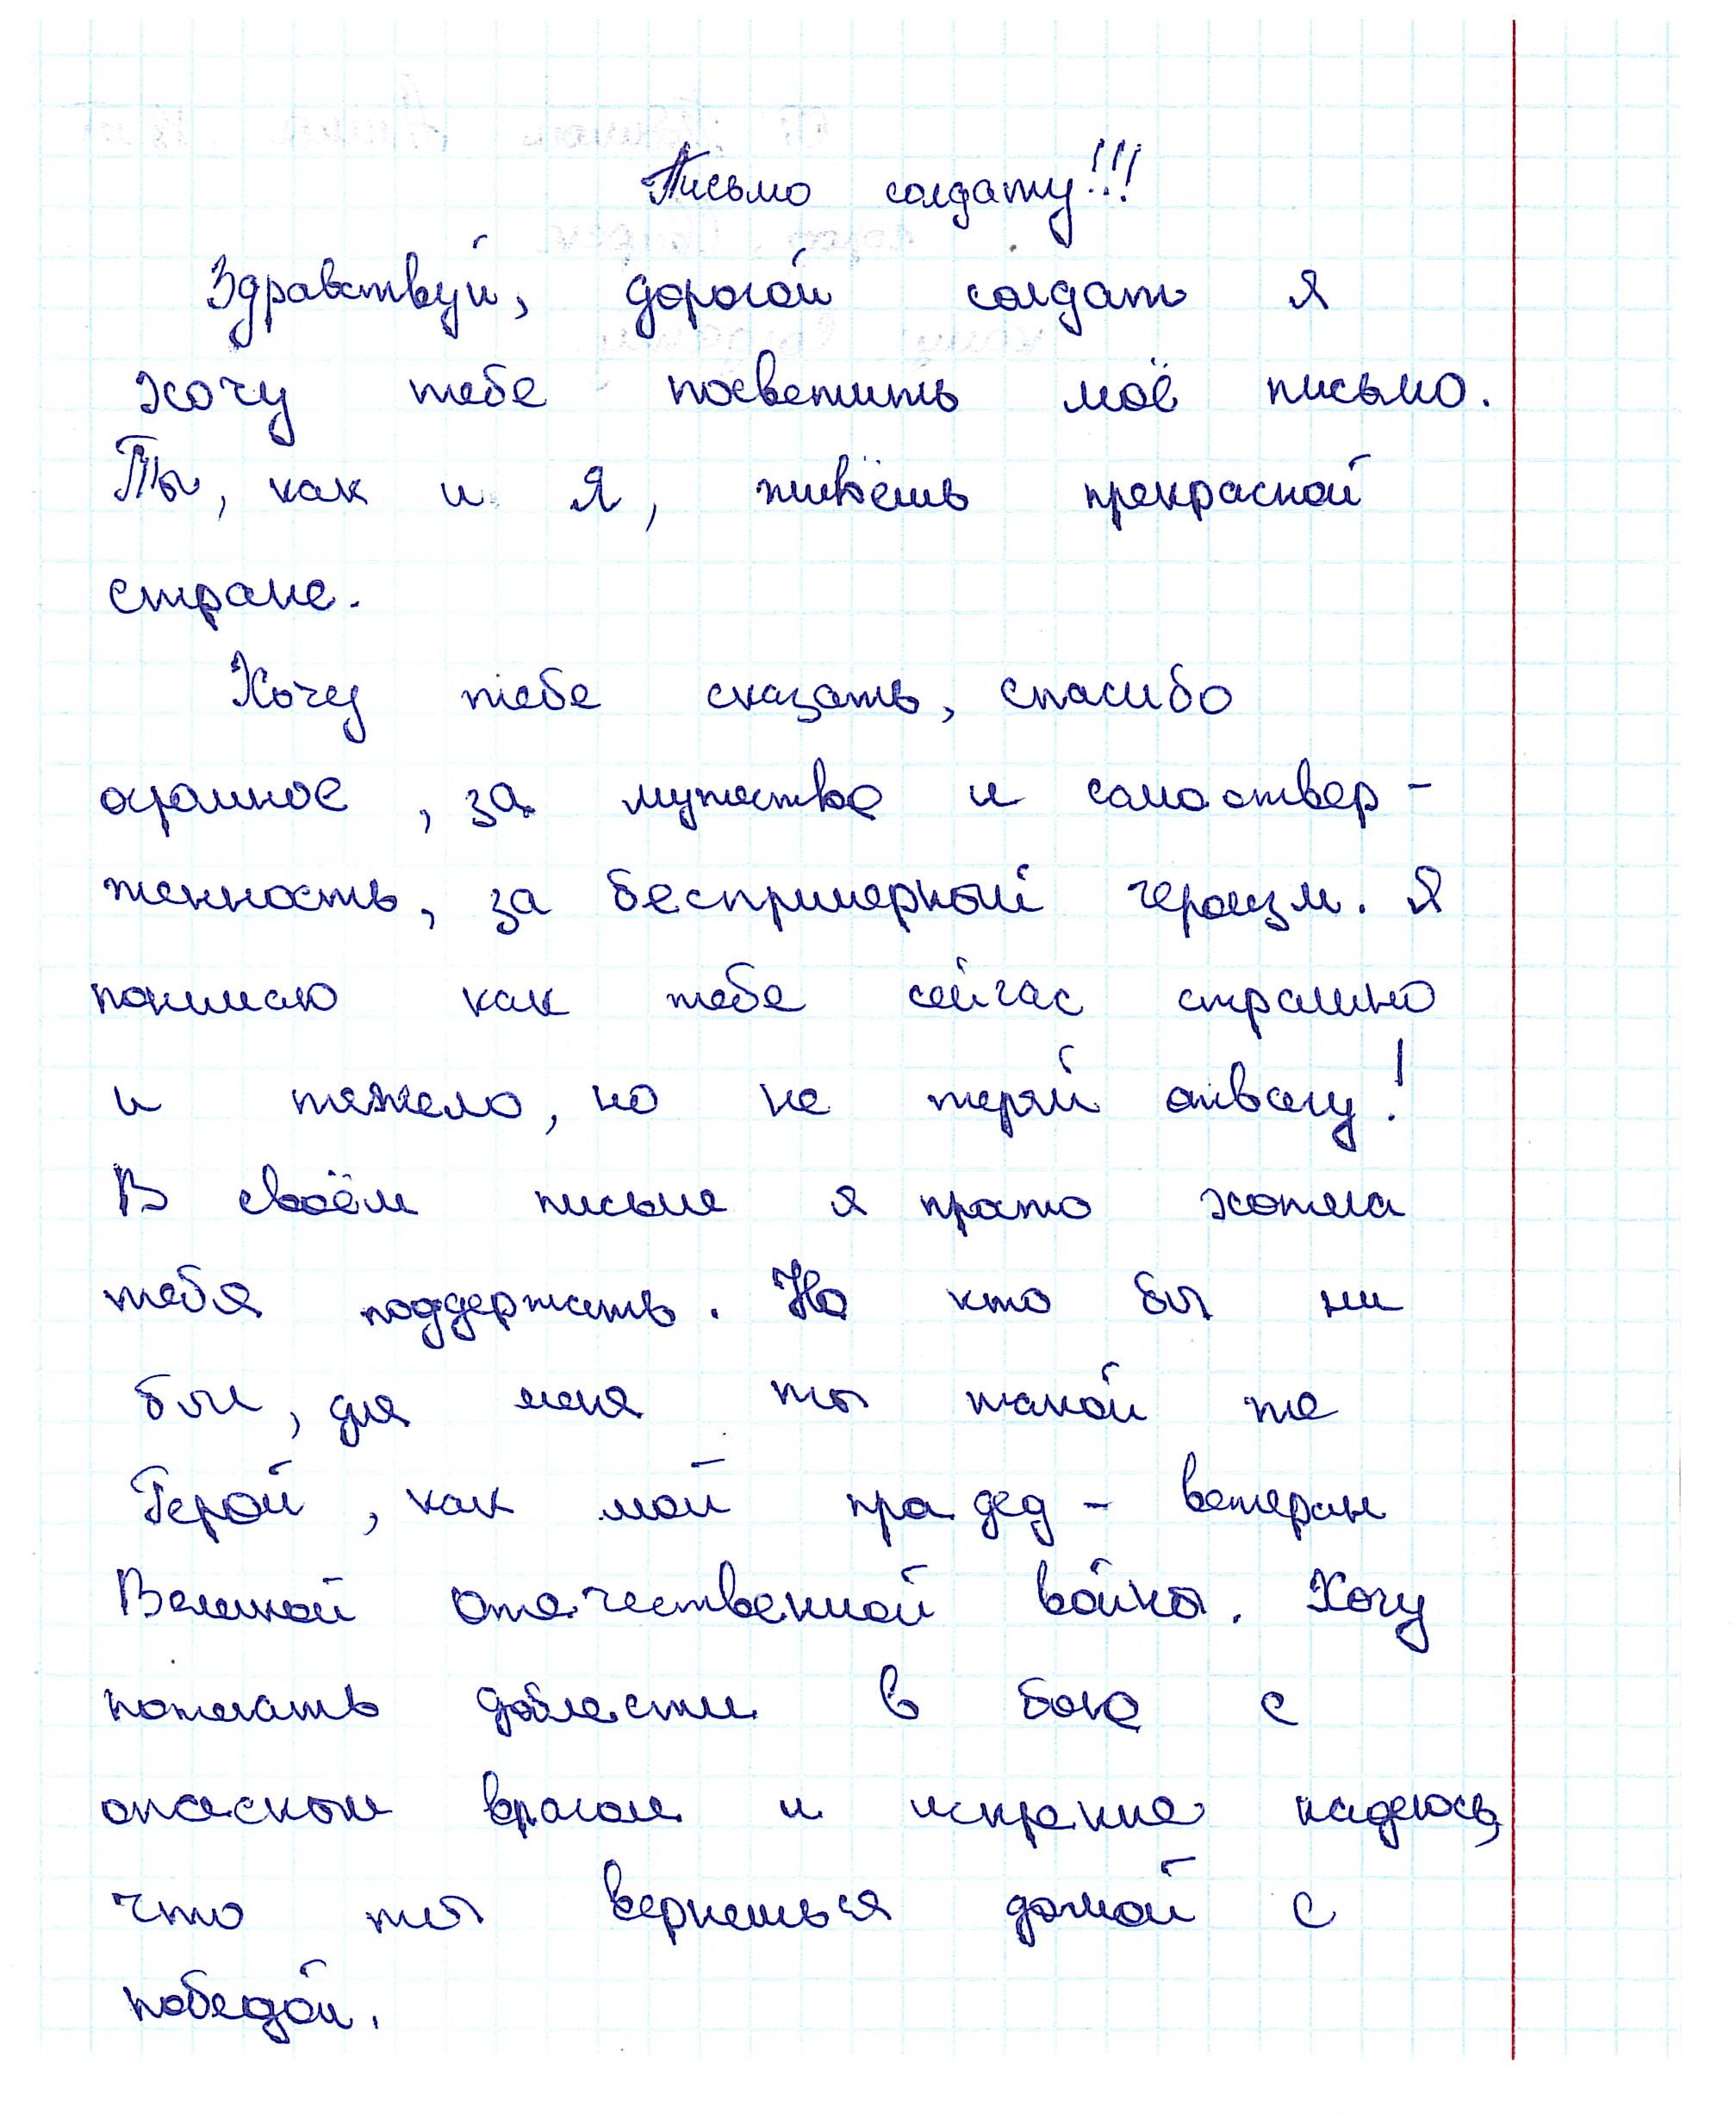 Письмо солдату!!!
Здравствуй, дорогой солдат я
хочу тебе посветить моё письмо.
Ты, как и я, живёшь прекрасной
стране.
Хочу тебе сказать, спасибо
огромное, за мужество и самоотвер-
женность, за беспримерный героизм. Я
понимаю как тебе сейчас страшно
и тяжело, но не теряй отвагу!
В своём письме я прото хотела
тебя поддержать. Но кто бы ни
был, для меня ты такой же
Герой, как мой прадед - ветеран
Великой Отечественной войны. Хочу
пожелать доблести в бою с
опасным врагом и искренне надеюсь,
что ты вернешься домой с
победой.